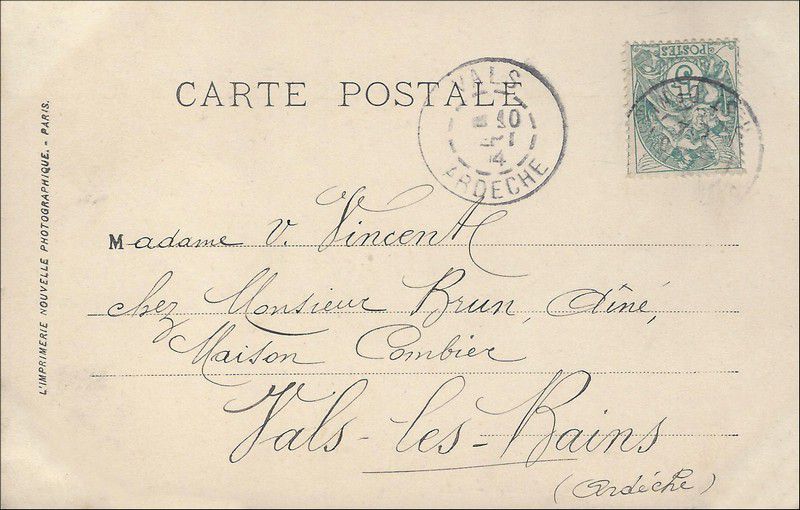 CARTE POSTALE
VALS
10
4
ARDECHE
POSTES
5
Madame V. Vincent
chez Monsieur Brun, Aîné,
Maison Combier
Vals-les-Bains
(Ardèche)
L'IMPRIMERIE NOUVELLE PHOTOGRAPHIQUE. - PARIS.